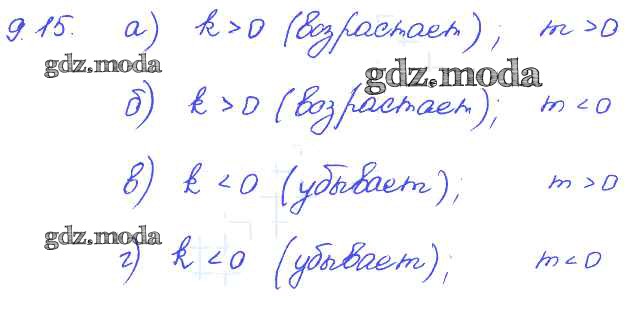 9.15. а) k > 0 (возрастает); m > 0
gdz.moda
gdz.moda
б) k > 0 (возрастает); m < 0
в) k < 0 (убывает); m > 0
gdz.moda
г) k < 0 (убывает); m < 0